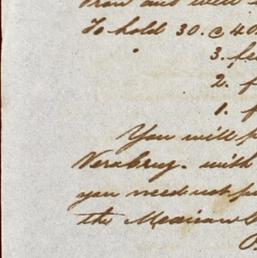 and well
To hold 30. @ 40
3. fe
2. f
1. f
You will p
Vera Cruz. with
you need not pu
the Mexican